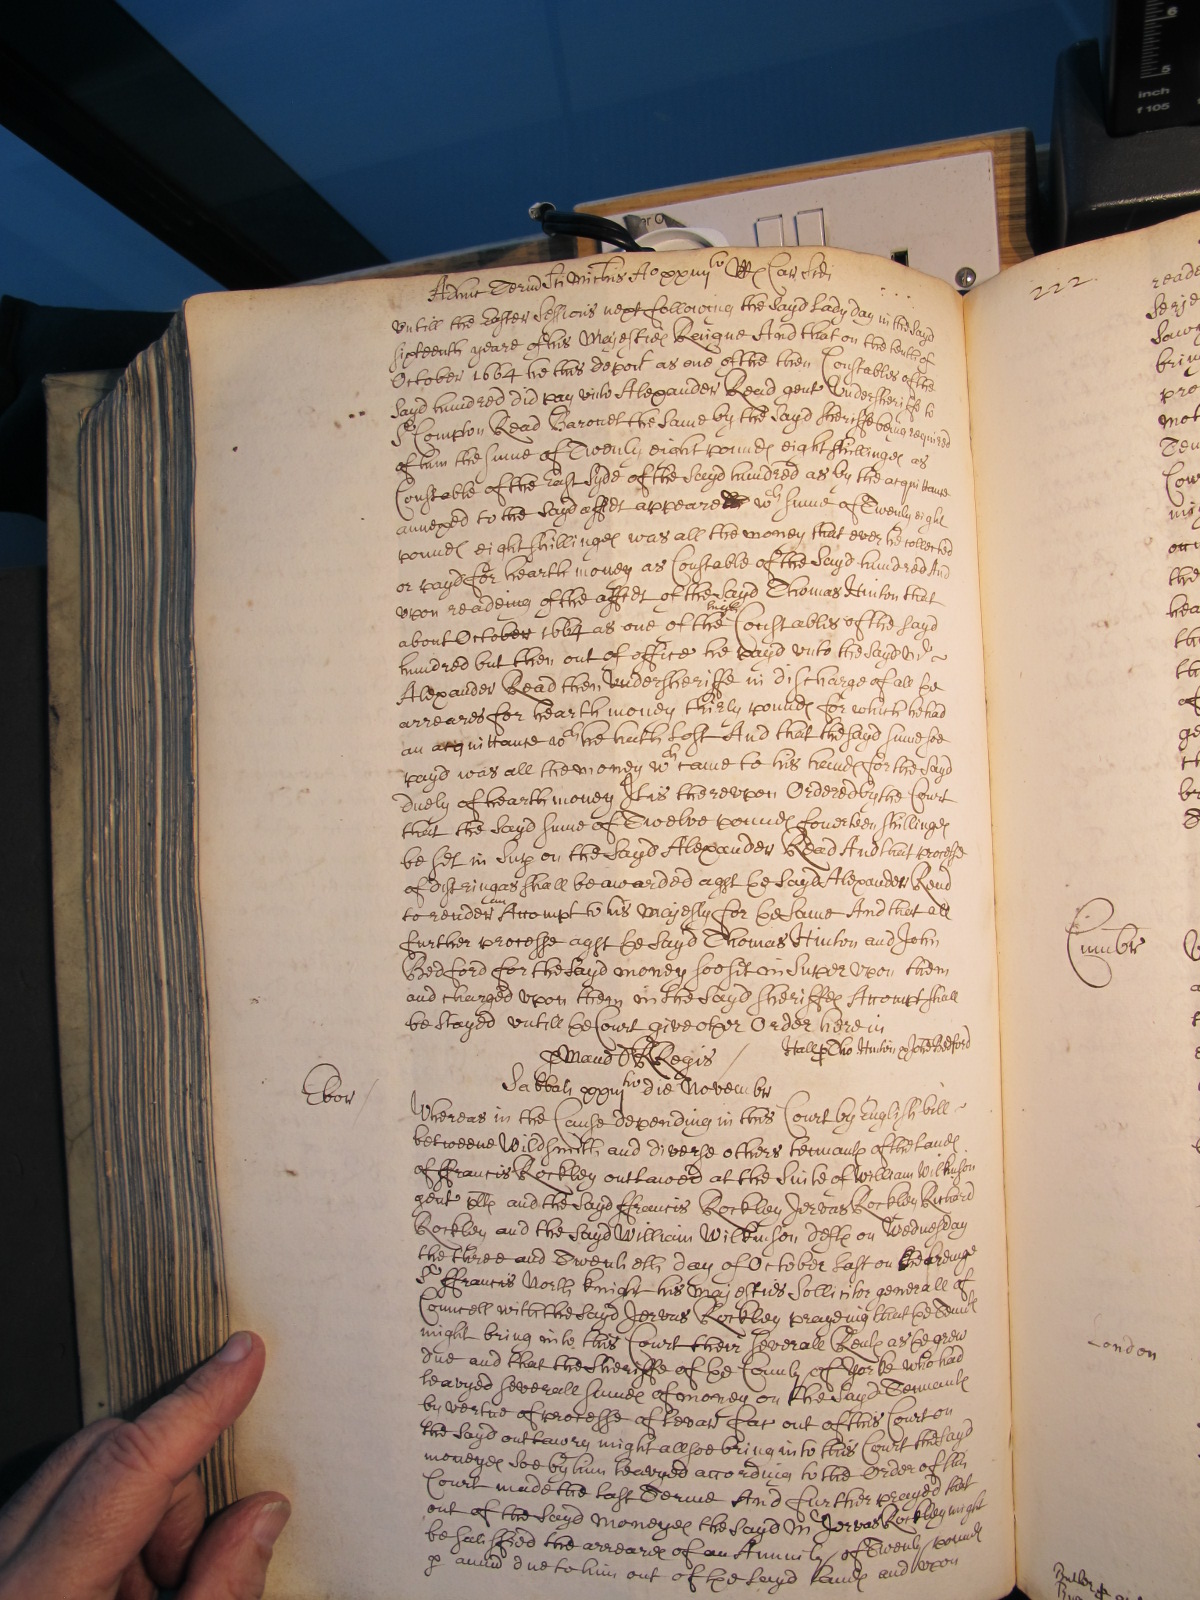 Adhuc Termino Sti Michis Ao xxiiijto Rx Car Scdi
222
untill the Easter Sessions next following the Sayd Lady day in the Sayd
sixteenth yeare of his Majesties Reigne And that on the tenth of
October 1664 he this depont as one of the then Constables of the
Sayd hundred did pay unto Alexander Read gent Undersheriffe to
Sr Compton Read Baronet the Same by the Sayd Sheriffe being required
of him the sume of Twenty eight pounds eight shillinges as
Constable of the East Syde of the Sayd hundred as by the acquittance
annexed to the Sayd affidt appeares wch sume of Twenty eight
pounds eight shillinges was all the money that ever he collected
or payd for hearth money as Constable of the Sayd hundred And
upon readeing of the affidt of the Sayd Thomas Hinton that
about October 1664 as one of the high Constables of the Sayd
hundred but then out of office he payd unto the Sayd Mr
Alexander Read then Undersheriffe in discharge of all ye
arreares for hearth money thirty pounds for which he had
an acquittance wch he hath lost And that the sayd sume soe
payd was all the money wch came to his hands for the Sayd
duety of hearth money It is thereupon Ordered by the Court
that the Sayd sume of Twelve pounds fourteen shillinges
be set in Sup on the Sayd Alexander Read And that processe
of distringas shall be awarded agst ye Sayd Alexander Read
to render an Accompt to his Majesty for ye Same And that all
further processe agst ye Sayd Thomas Hinton and John
Bedford for the Sayd money soe set in Super upon them
and charged upon them in the Sayd Sheriffes Accompt shall
be Stayed untill ye Court give other Order herein
Hall p Tho Hinton & John Bedford
Regis
Sabbati xxiijtio die Novembr
Ebor
Whereas in the Cause depending in this Court by English bill
betweene Wildsmith and diverse others tennants of the lands
of ffrancis Rockley outlawed at the Suite of William Wilkinson
gent plts and the Sayd ffrancis Rockley Jervas Rockley Richard
Rockley and the Sayd William Wilkinson defts on Wednesday
the three and Twentieth day of October last on heareinge
Sr ffrancis North knight his Majesties Sollicitor generall of
Councell with the Sayd Jervas Rockley prayeing that ye Tennts
might bring into this Court their severall Rents as ye grew
due and that the Sheriffe of ye County of Yorke who had
leavyed severall sumes of money on the Sayd Tennants
by vertue of processe of levari fac out of this Court on
the Sayd outlawry might allsoe bring into this Court the Sayd
moneyes soe by him leavyed according to the Order of this
Court made the last Terme And further prayed that
out of the Sayd moneyes the Sayd Mr Jervas Rockley might
be satisfied the arreares of an Annuity of Twenty pounds
p annu due to him out of ye Sayd lands and upon
Cumbr
London
inch
f 105
5
6